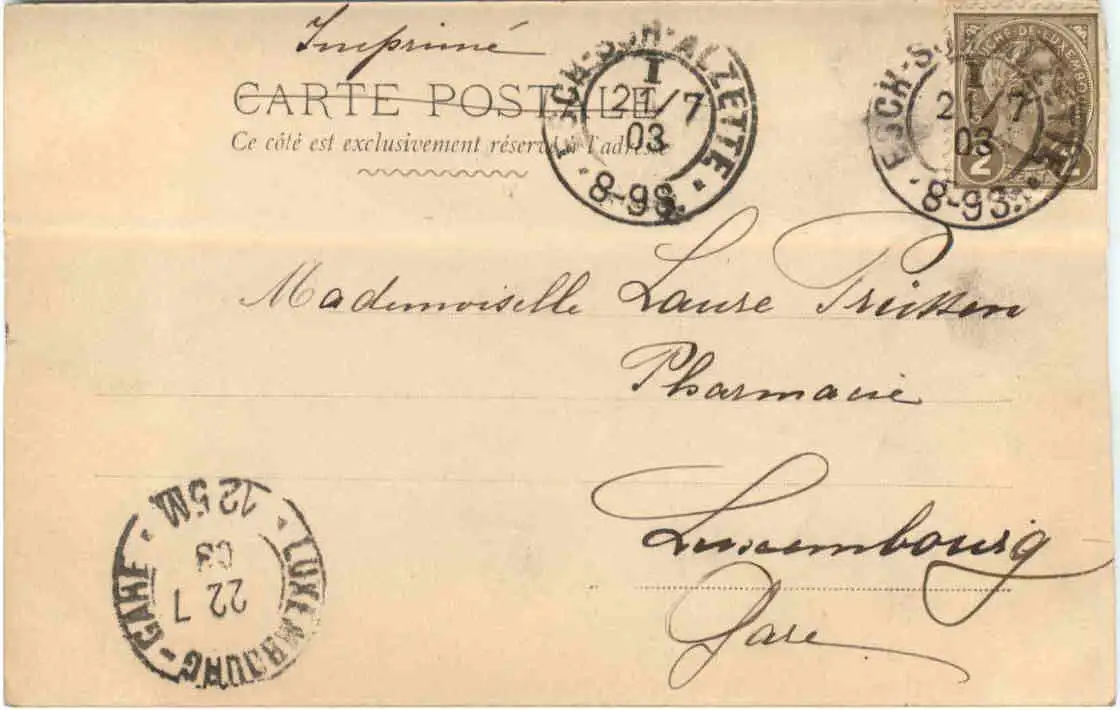 Imprimé
CARTE POSTALE
Ce côté est exclusivement réservé à l'adresse
ESCH-S-ALZETTE
I
21/7
03
8-9S.
ESCH-S-ALZETTE
I
2 /7
03
8-9S.
2 2
Mademoiselle Laure
Pharmacie
Luxembourg
Gare
LUXEMBOURG-GARE
22 7
03
12 5M